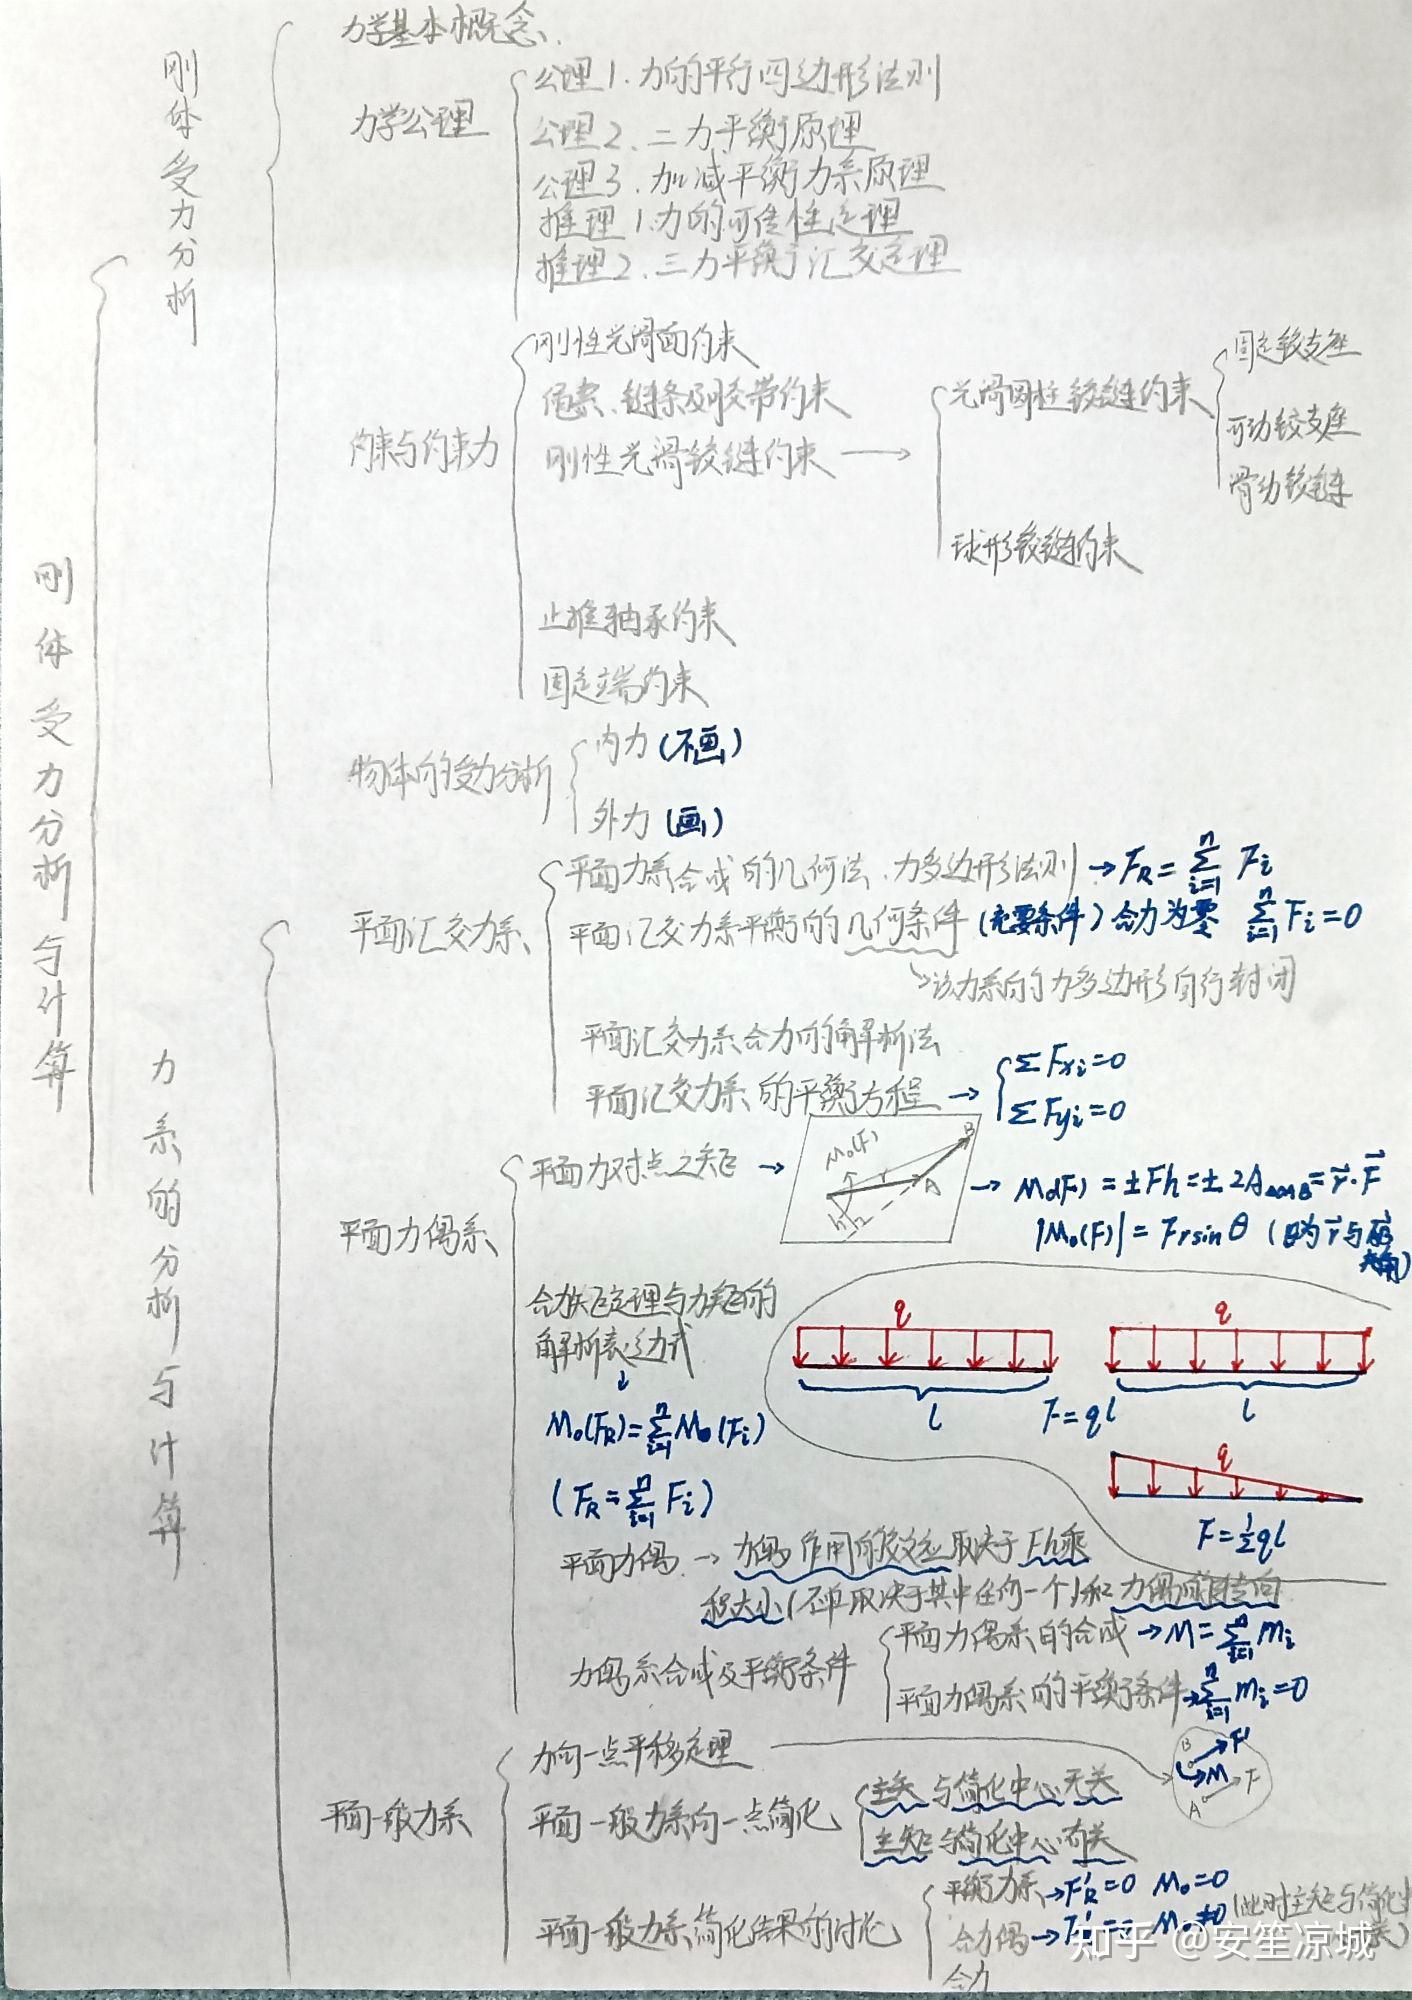 刚体受力分析与计算
刚体受力分析
力学基本概念
力学公理
公理1.力的平行四边形法则
公理2.二力平衡原理
公理3.加减平衡力系原理
推理1.力的可传性定理
推理2.三力平衡汇交定理
约束与约束力
刚性光滑面约束
绳索、链条及胶带约束
刚性光滑铰链约束 →
光滑圆柱铰链约束
固定铰支座
可动铰支座
滑动铰链
球形铰链约束
止推轴承约束
固定端约束
物体的受力分析
内力(不画)
外力(画)
力系的分析与计算
平面汇交力系
平面力系合成的几何法.力多边形法则 → F_R = ∑_{i=1}^{n} F_i
平面汇交力系平衡的几何条件(充要条件)合力为零 ∑_{i=1}^{n} F_i = 0
→该力系的力多边形自行封闭
平面汇交力系合力的解析法
平面汇交力系的平衡方程 →
∑F_{xi}=0
∑F_{yi}=0
平面力偶系
平面力对点之矩 →
M_0(F) B
r A
h
→ M_0(F) = ±Fh = ±2A_{△OAB} = r⃗·F⃗
|M_0(F)| = Fr sinθ (θ为r⃗与
夹角)
合力矩定理与力矩的
解析表达式
↓
M_0(F_R) = ∑_{i=1}^{n} M_0(F_i)
(F_R = ∑_{i=1}^{n} F_i)
q q
l F=ql l
q
F=½ql
平面力偶 → 力偶作用的效应取决于Fh乘
积大小(不单取决于其中任何一个)和力偶的转向
力偶系合成及平衡条件
平面力偶系的合成 → M = ∑_{i=1}^{n} m_i
平面力偶系的平衡条件 → ∑_{i=1}^{n} m_i = 0
平面一般力系
力向一点平移定理
B F'
M
A F
平面一般力系向一点简化
主矢与简化中心无关
主矩与简化中心有关
平面一般力系简化结果的讨论
平衡力系 → F'_R=0 M_0=0
合力偶 → M_0≠0 (此时主矩与简化中
合力
知乎 @安笙凉城